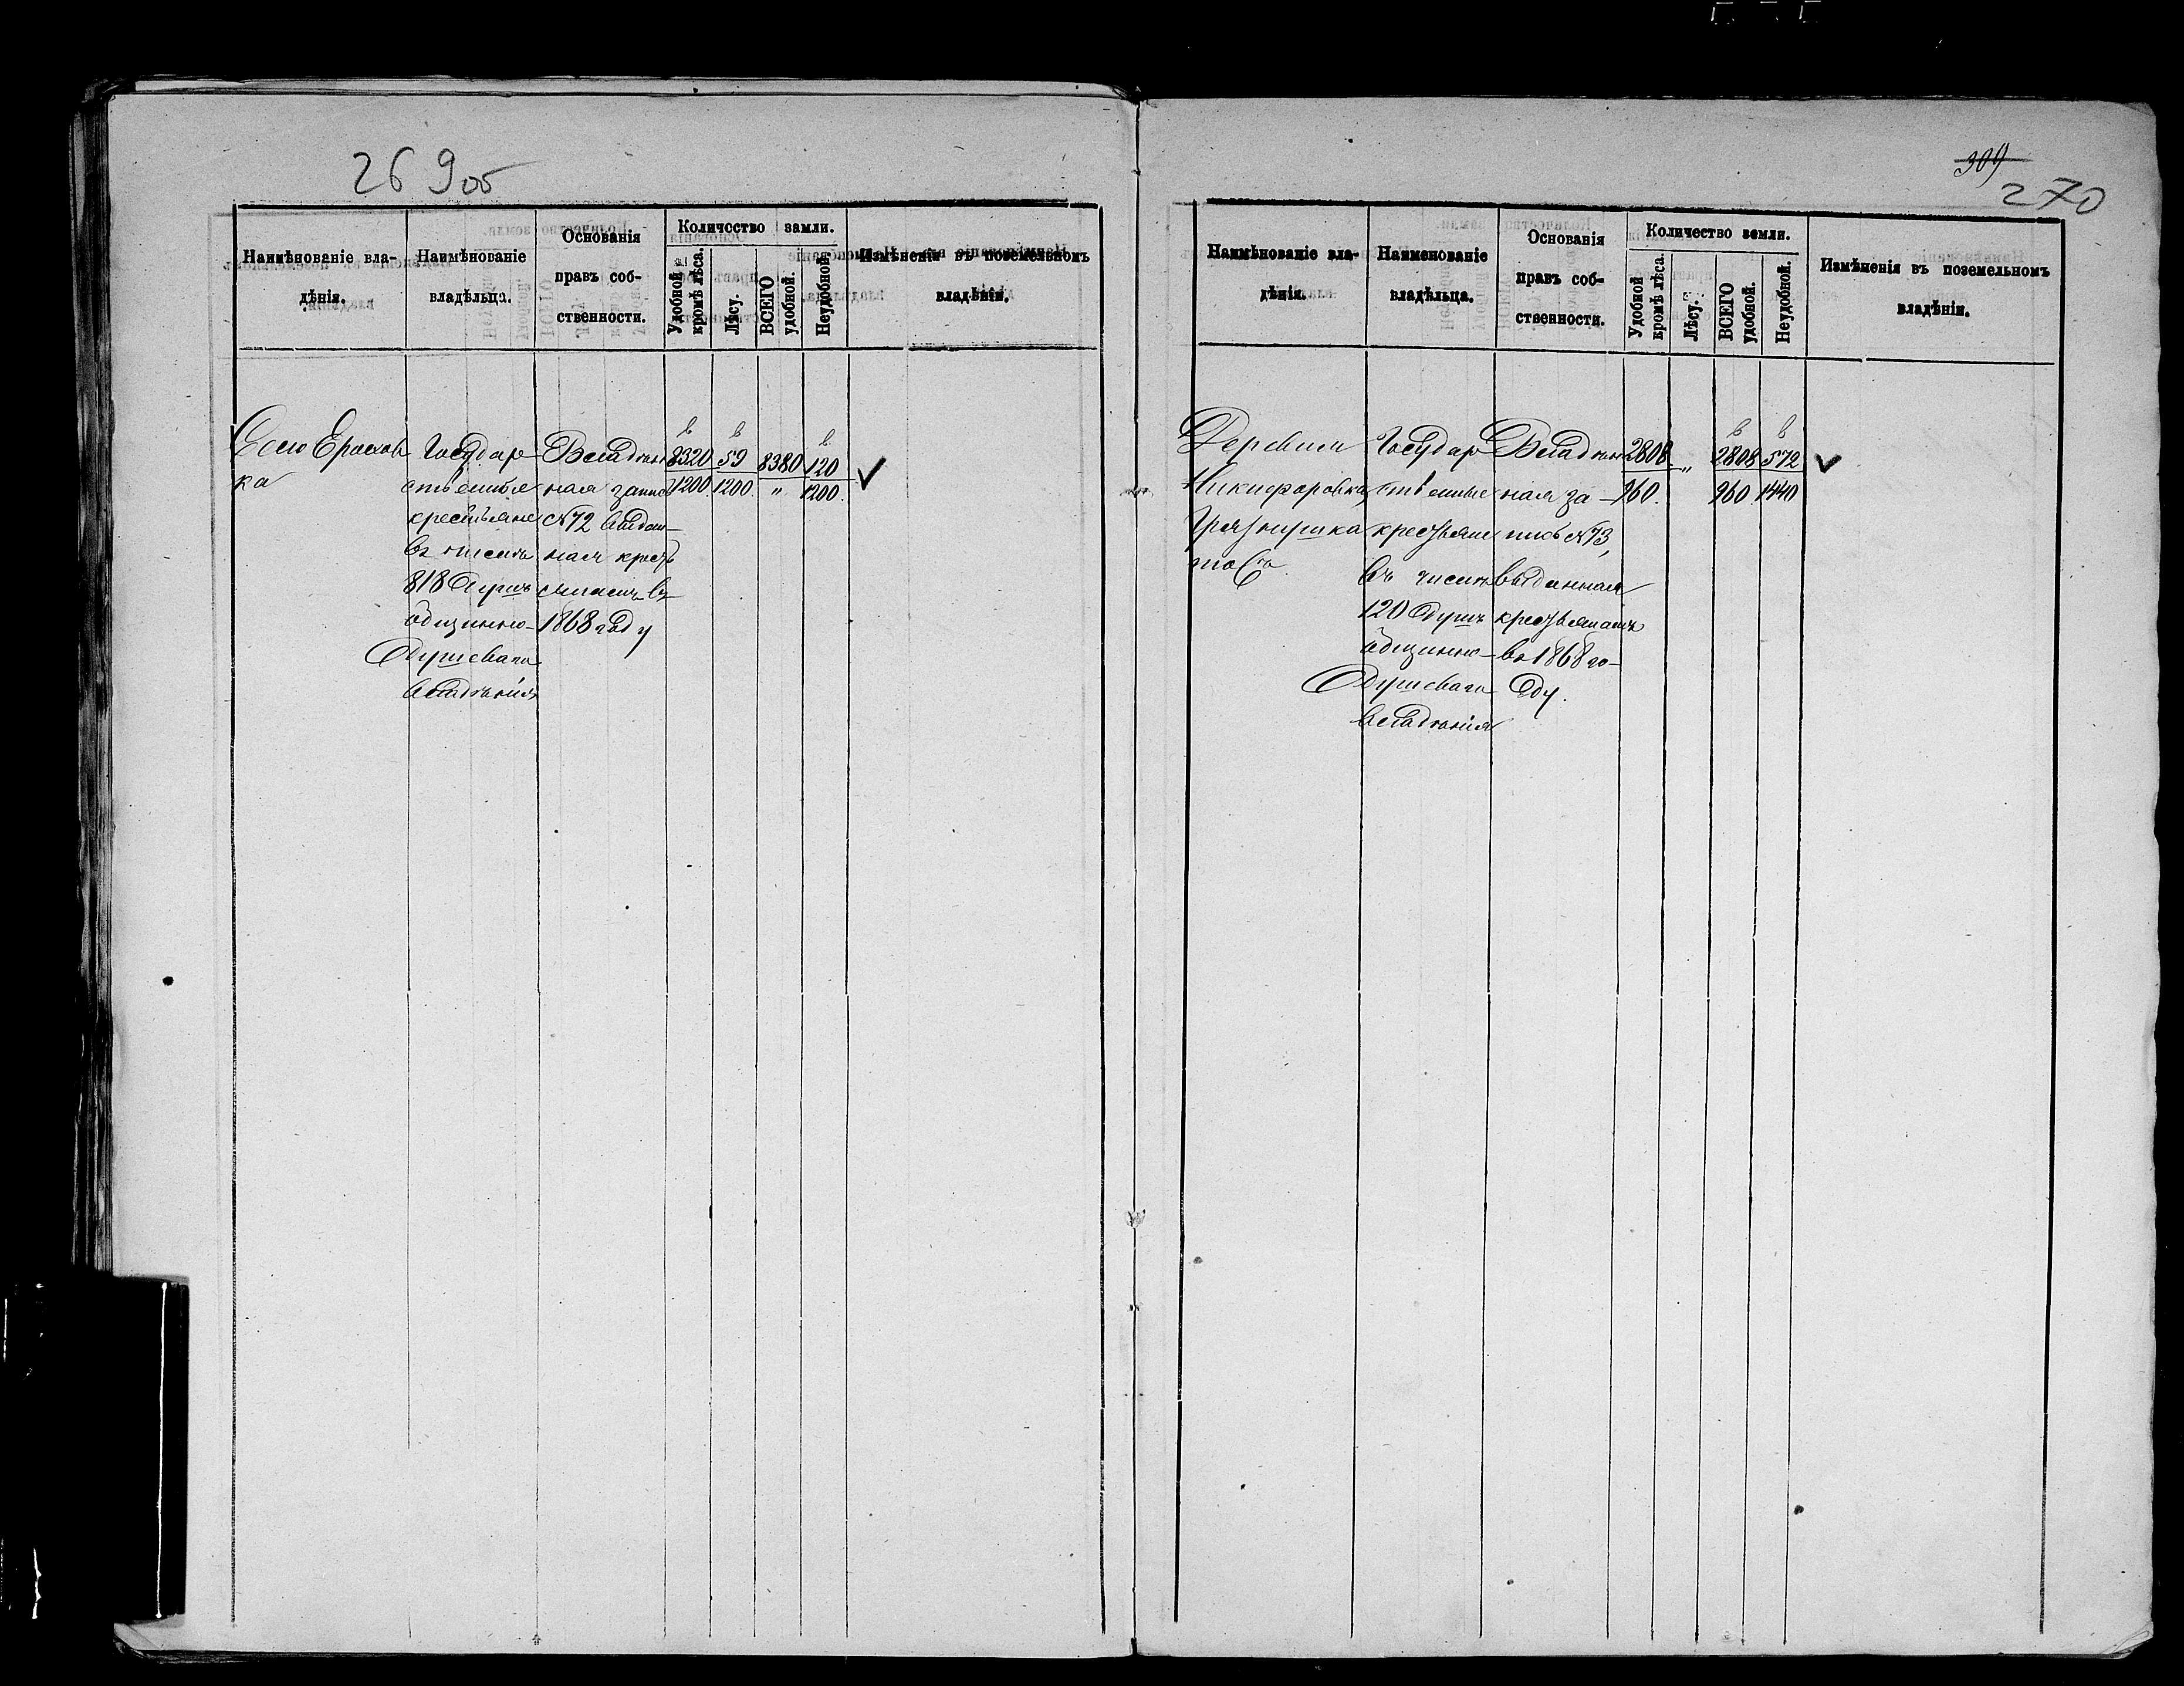 269об
Наимѣнованіе вла-
дѣнія.
Наимѣнованіе
владѣльца.
Основанія
правъ соб-
ственности.
Количество земли.
Удобной
кромѣ лѣса.
Лѣсу.
ВСЕГО
удобной.
Неудобной.
Измѣненія въ поземельномъ
владѣніи.
Село Ерахов
ка
Государ
ственные
крестьяне
въ числѣ
818 душъ
общинно-
душеваго
владѣнія
Владѣн
ная запись
№72 выдан-
ная кресть
янамъ въ
1868 году
8320
1200
59
1200
8380
"
120
1200.
309
270
Наимѣнованіе вла-
дѣнія.
Наименованіе
владѣльца.
Основанія
правъ соб-
ственности.
Количество земли.
Удобной
кромѣ лѣса.
Лѣсу.
ВСЕГО
удобной.
Неудобной.
Измѣненія въ поземельномъ
владѣніи.
Деревня
Никифоровка,
Грязнушка
тоже
Государ
ственные
крестьяне
въ числѣ
120 душъ
общинно-
душеваго
владѣнія
Владѣн
ная за-
пись №73,
выданная
крестьянамъ
въ 1868 го-
ду.
2808
960.
"
2808
960.
572
1440